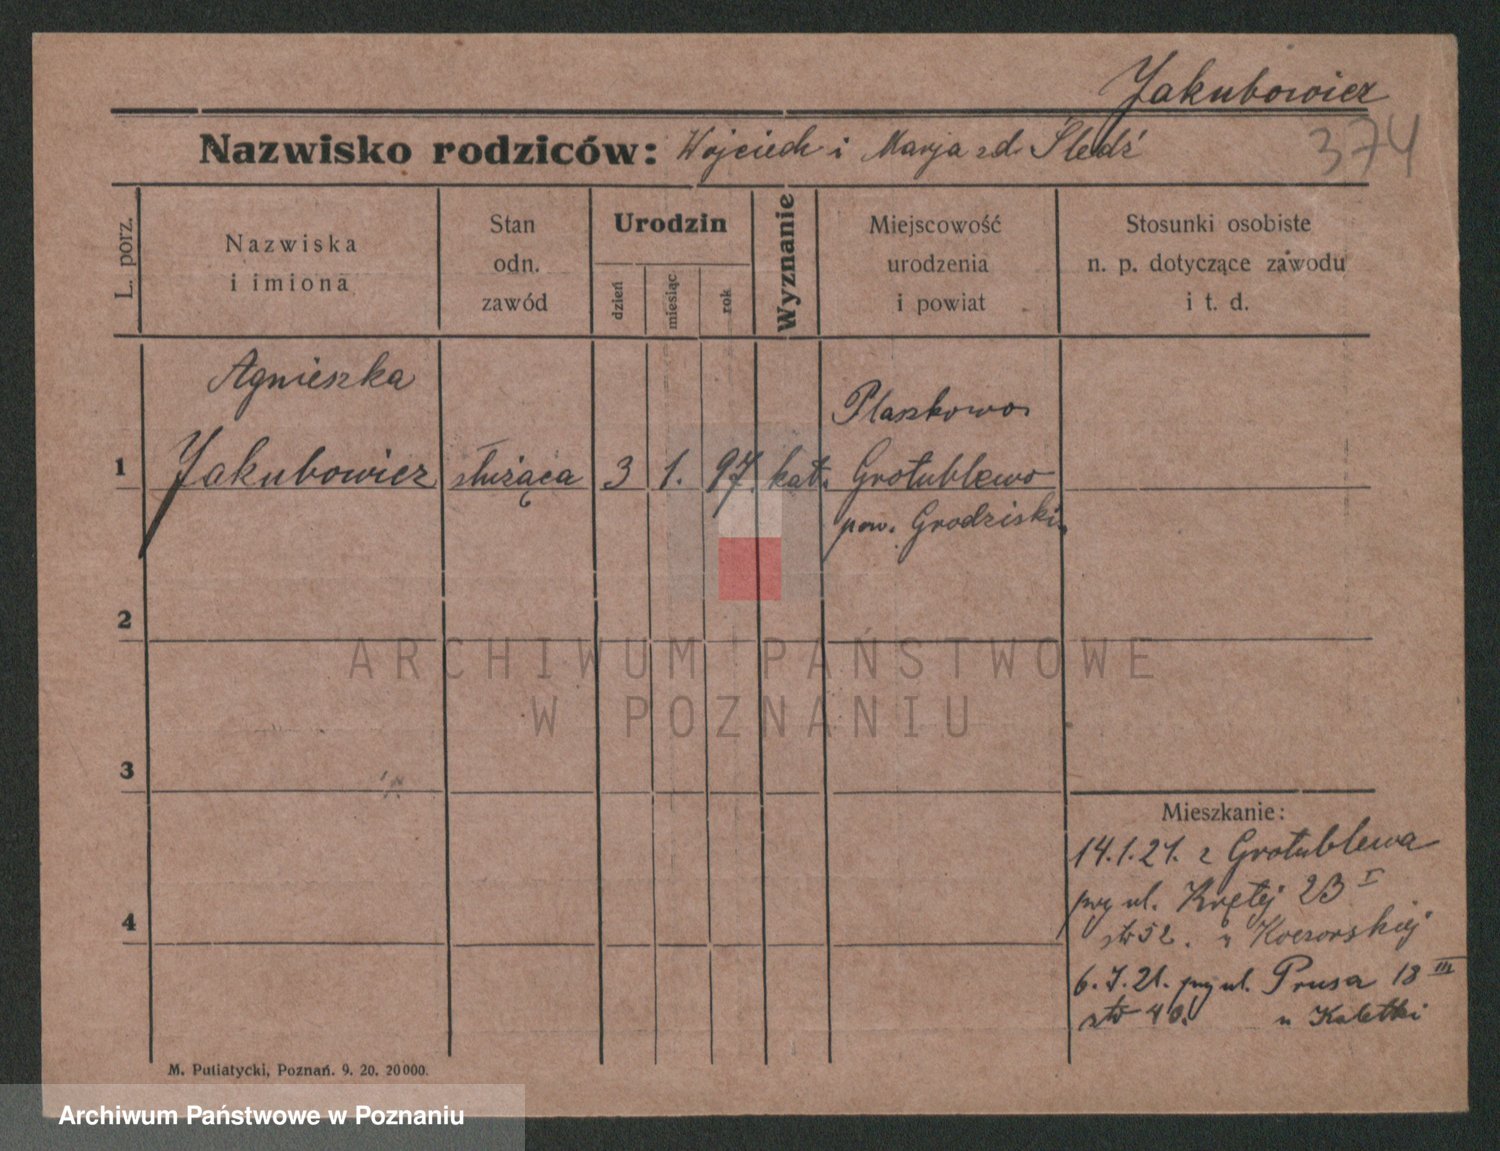 Jakubowicz
374
Nazwisko rodziców: Wojciech i Marja zd. Śledź
L. porz.
Nazwiska
i imiona
Stan
odn.
zawód
Urodzin
dzień
miesiąc
rok
Wyznanie
Miejscowość
urodzenia
i powiat
Stosunki osobiste
n. p. dotyczące zawodu
i t. d.
Agnieszka
Ptaszkowo
1 Jakubowicz służąca 3 1. 97. kat. Grotublewo
pow. Grodziski
2
ARCHIWUM PAŃSTWOWE
W POZNANIU
3
Mieszkanie:
14.1.21. z Grotublewa
przy ul. Krętej 2B I
str 52. u
4
6. 7. 21. przy ul. Prusa 18 III
str 40. u Kaletki
M. Putiatycki, Poznań. 9. 20. 20000.
Archiwum Państwowe w Poznaniu